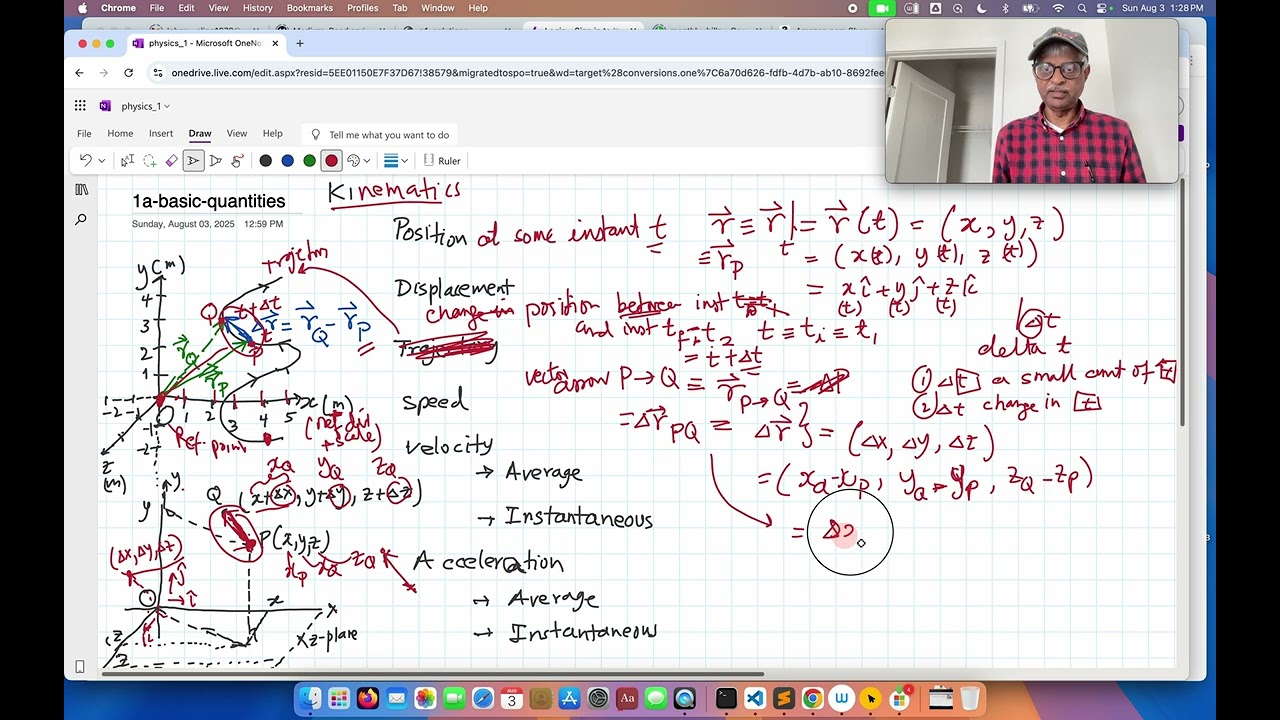 Chrome File Edit View History Bookmarks Profiles Tab Window Help Sun Aug 3 1:28 PM
physics_1 - Microsoft OneNo
onedrive.live.com/edit.aspx?resid=5EE01150E7F37D67!38579&migratedtospo=true&wd=target%28conversions.one%7C6a70d626-fdfb-4d7b-ab10-8692fee
physics_1
File Home Insert Draw View Help Tell me what you want to do
Ruler
1a-basic-quantities
Sunday, August 03, 2025 12:59 PM
Kinematics
Position at some instant t
r⃗ ≡ r⃗|t = r⃗(t) = (x, y, z)
≡ r⃗P = (x(t), y(t), z(t))
= xî + yĵ + zk̂
(t) (t) (t)
Displacement
change in position between inst t
and inst tf = t2 t ≡ ti ≡ t1
= t + Δt
Δt
delta t
① Δt a small amt of t
② Δt change in t
vector arrow P → Q ≡ r⃗ P→Q
= Δr⃗PQ ≡ Δr⃗ } = (Δx, Δy, Δz)
= (xQ - xP, yQ - yP, zQ - zP)
= Δ
speed
velocity
→ Average
→ Instantaneous
Acceleration
→ Average
→ Instantaneous
y(m)
4
3
2
1
trajctm
Q t+Δt
Δr⃗ = r⃗Q - r⃗P
P t
r⃗Q
r⃗P
-2 -1 1 2 3 4 5 x(m)
-1
-2
z (m)
Ref. point
(ref dir + scale)
xQ yQ zQ
Q (x+Δx, y+Δy, z+Δz)
P(x, y, z)
xP xQ zQ
(Δx, Δy, Δz)
y
y
ĵ
î
k̂
x
x
z
z
xz-plane